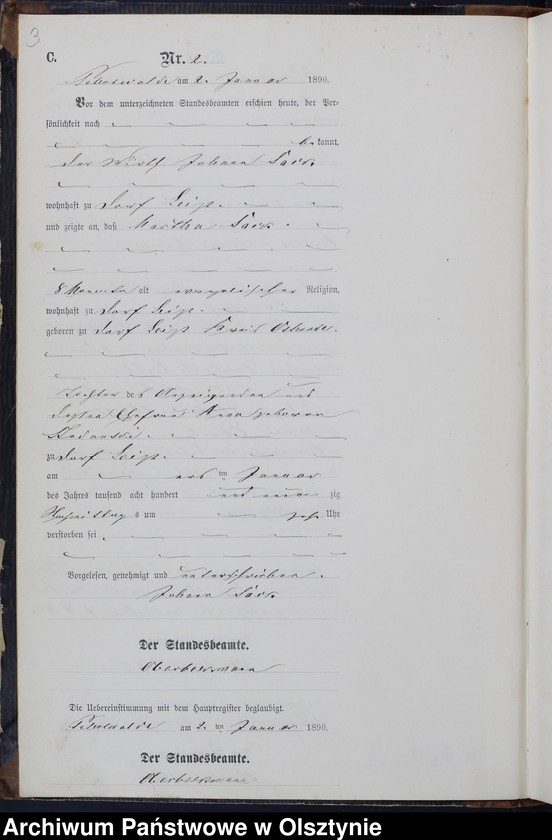 3
C.
Nr. 2.
am 2. Januar 1890.
Vor dem unterzeichneten Standesbeamten erschien heute, der Per-
sönlichkeit nach
be kannt,
der Wirth Johann
wohnhaft zu Dorf Leip.
und zeigte an, daß Martha
8 Monate alt evangelischer Religion,
wohnhaft zu Dorf Leip.
geboren zu Dorf Leip Kreis Osterode.
Tochter des Anzeigenden und
dessen Ehefrau geborenen
zu Dorf Leip.
am ersten Januar
des Jahres tausend acht hundert und neun zig
Nachmittags um Uhr
verstorben sei
Vorgelesen, genehmigt und unterschrieben.
Johann
Der Standesbeamte.
Die Uebereinstimmung mit dem Hauptregister beglaubigt.
am 2. ten Januar 1890.
Der Standesbeamte.
Archiwum Państwowe w Olsztynie